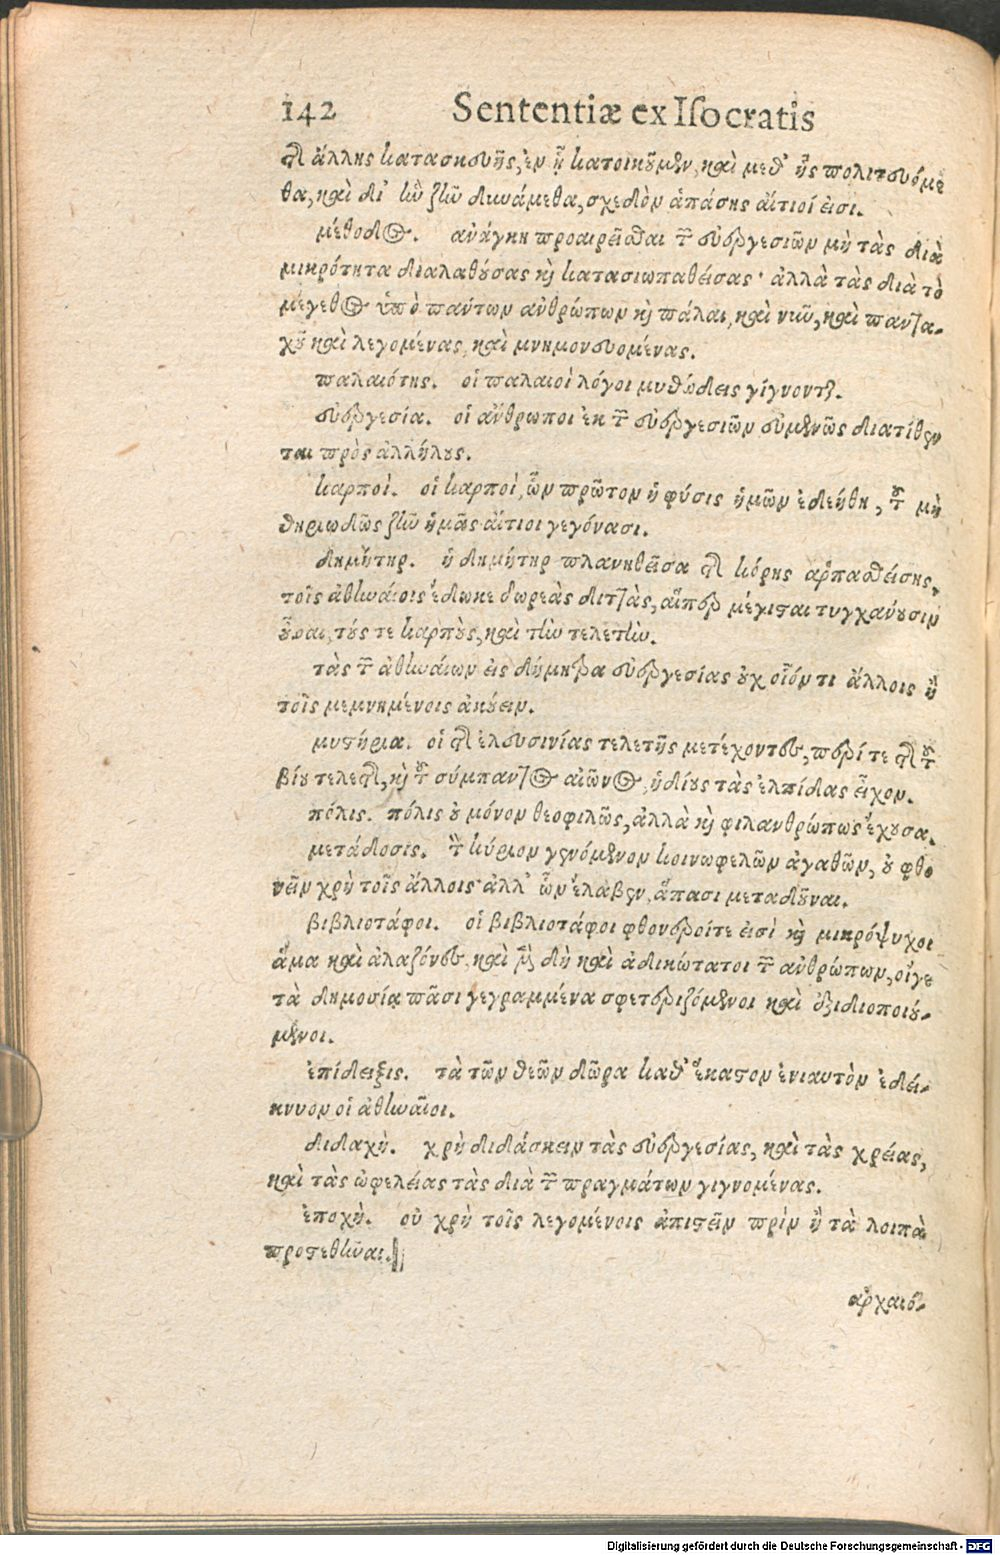 142 Sententiæ ex Iſocratis
τῆς ἄλλης κατασκευῆς, ἐν ᾗ κατοικοῦμεν, καὶ μεθ' ἧς πολιτευόμε
θα, καὶ δι' ἣν ζῆν δυνάμεθα, σχεδὸν ἁπάσης αἴτιοί εἰσι.
μέθοδος. ἀνάγκη προαιρεῖσθαι τῶν εὐεργεσιῶν μὴ τὰς διὰ
μικρότητα διαλαθούσας καὶ κατασιωπαθείσας· ἀλλὰ τὰς διὰ τὸ
μέγεθος ὑπὸ πάντων ἀνθρώπων καὶ πάλαι, καὶ νῦν, καὶ παντα-
χοῦ καὶ λεγομένας, καὶ μνημονευομένας.
παλαιότης. οἱ παλαιοὶ λόγοι μυθώδεις γίγνονται.
εὐεργεσία. οἱ ἄνθρωποι ἐκ τῶν εὐεργεσιῶν εὐμενῶς διατίθεν
ται πρὸς ἀλλήλους.
καρποὶ. οἱ καρποὶ, ὧν πρῶτον ἡ φύσις ἡμῶν ἐδεήθη, τοῦ μὴ
θηριωδῶς ζῆν ἡμᾶς αἴτιοι γεγόνασι.
δημήτηρ. ἡ δημήτηρ πλανηθεῖσα τῆς κόρης ἁρπασθείσης,
τοῖς ἀθηναίοις ἔδωκε δωρεὰς διττὰς, αἵπερ μέγισται τυγχάνουσιν
οὖσαι, τούς τε καρποὺς, καὶ τὴν τελετὴν.
τὰς τῶν ἀθηναίων εἰς δήμητρα εὐεργεσίας οὐχ οἷόν τι ἄλλοις ἢ
τοῖς μεμνημένοις ἀκούειν.
μυστήρια. οἱ τῆς ἐλευσινίας τελετῆς μετέχοντες, περί τε τῆς τοῦ
βίου τελετῆς, καὶ τοῦ σύμπαντος αἰῶνος, ἡδίους τὰς ἐλπίδας εἶχον.
πόλις. πόλις οὐ μόνον θεοφιλῶς, ἀλλὰ καὶ φιλανθρώπως ἔχουσα.
μετάδοσις. τὸν κύριον γενόμενον κοινωφελῶν ἀγαθῶν, οὐ φθο
νεῖν χρὴ τοῖς ἄλλοις ἀλλ' ὧν ἔλαβεν, ἅπασι μεταδοῦναι.
βιβλιοτάφοι. οἱ βιβλιοτάφοι φθονεροίτε εἰσὶ καὶ μικρόψυχοι
ἅμα καὶ ἀλαζόνες, καὶ μὲν δὴ καὶ ἀδικώτατοι τῶν ἀνθρώπων, οἵγε
τὰ δημοσίᾳ πᾶσι γεγραμμένα σφετεριζόμενοι καὶ ἐξιδιοποιού-
μενοι.
ἐπίδειξις. τὰ τῶν θεῶν δῶρα καθ' ἕκαστον ἐνιαυτὸν ἐδεί-
κνυον οἱ ἀθηναῖοι.
διδαχὴ. χρὴ διδάσκειν τὰς εὐεργεσίας, καὶ τὰς χρείας,
καὶ τὰς ὠφελείας τὰς διὰ τῶν πραγμάτων γιγνομένας.
ἐποχὴ. οὐ χρὴ τοῖς λεγομένοις ἀπιστεῖν πρὶν ἢ τὰ λοιπὰ
προστεθῆναι.
ἀρχαιό-
Digitalisierung gefördert durch die Deutsche Forschungsgemeinschaft - DFG